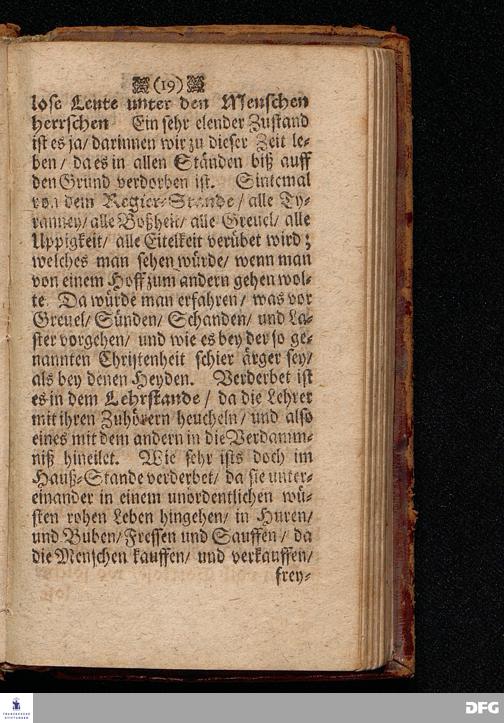 (19)
lose Leute unter den Menschen
herrschen Ein sehr elender Zustand
ist es ja/ darinnen wir zu dieser Zeit le-
ben/ da es in allen Ständen biß auff
den Grund verdorben ist. Sintemal
von dem Regier-Stande/ alle Ty-
ranney/ alle Boßheit/ alle Greuel/ alle
Uppigkeit/ alle Eitelkeit verübet wird;
welches man sehen würde/ wenn man
von einem Hoff zum andern gehen wol-
te. Da würde man erfahren/ was vor
Greuel/ Sünden/ Schanden/ und La-
ster vorgehen/ und wie es bey der so ge-
nannten Christenheit schier ärger sey/
als bey denen Heyden. Verderbet ist
es in dem Lehrstande/ da die Lehrer
mit ihren Zuhörern heucheln/ und also
eines mit dem andern in die Verdamm-
niß hineilet. Wie sehr ists doch im
Hauß-Stande verderbet/ da sie unter-
einander in einem unordentlichen wü-
sten rohen Leben hingehen/ in Huren/
und Buben/ Fressen und Sauffen/ da
die Menschen kauffen/ und verkauffen/
frey-
FRANCKESCHE
STIFTUNGEN
DFG